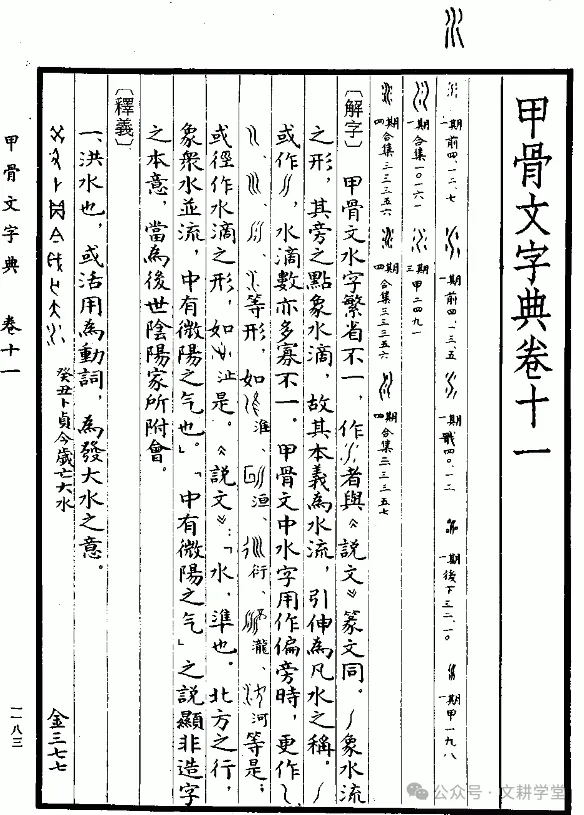 甲骨文字典卷十一
一期 前四、一二、七
一期 前四、一三、五
一期 戩四〇、一三
一期 後下三二、一〇
一期 甲一九八
一期 合集一〇一六一
三期 甲二四九一
四期 合集三三三五六
四期 合集三三三五六
四期 合集三三三五七
〔解字〕甲骨文水字繁省不一，作者與《說文》篆文同。象水流
之形，其旁之點象水滴，故其本義為水流，引伸為凡水之稱。
或作，水滴數亦多寡不一。甲骨文中水字用作偏旁時，更作
、、、等形，如淮、洹、衍、瀧、河等是；
或徑作水滴之形，如沚是。《說文》：「水，準也。北方之行，
象眾水並流，中有微陽之气也。」「中有微陽之气」之說顯非造字
之本意，當為後世陰陽家所附會。
〔釋義〕
一、洪水也，或活用為動詞，為發大水之意。
癸丑卜貞今歲亡大水
金三七七
甲骨文字典 卷十一
一一八三
公众号·文耕学堂